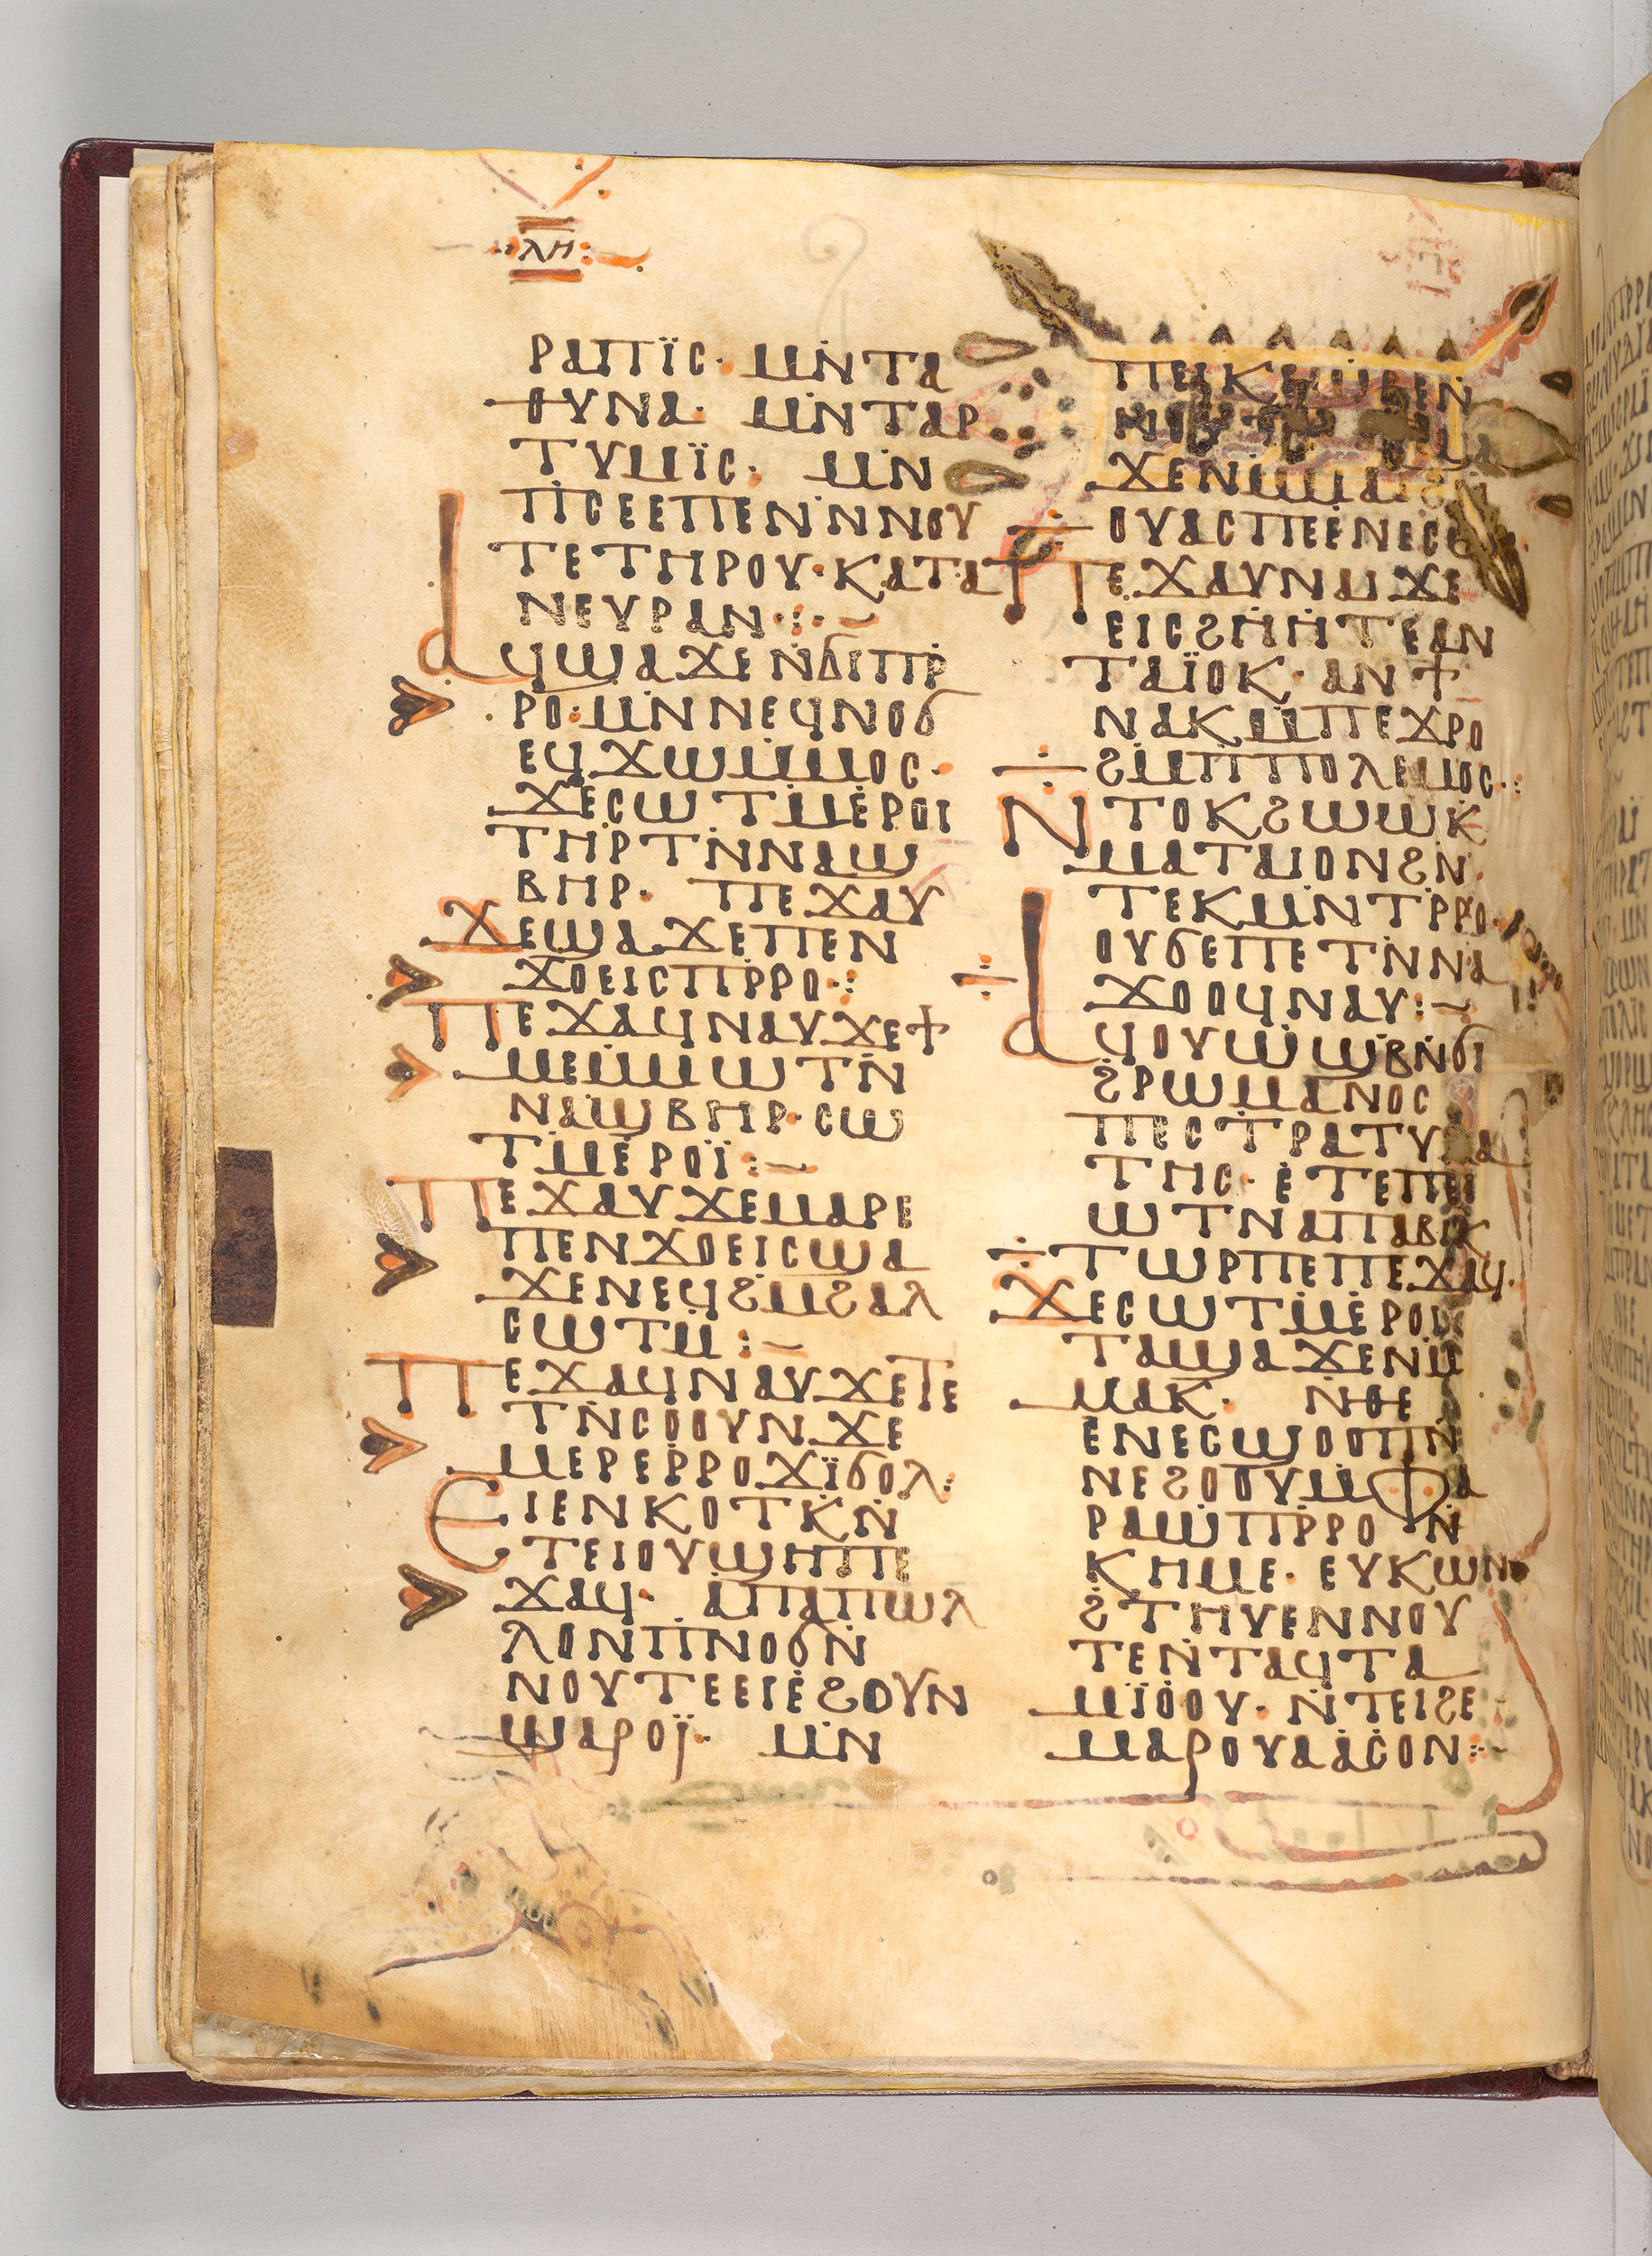 ⲗⲏ
ⲣⲁⲡⲓ̈ⲥ· ⲙⲛ̇ⲧⲁ
ⲑⲩⲛⲁ· ⲙⲛ̇ⲧⲁⲣ
ⲧⲩⲙⲓ̈ⲥ· ⲙⲛ̇
ⲡ̇ⲥⲉⲉⲡⲉⲛ̇ⲛ̇ⲛⲟⲩ
ⲧⲉⲧⲏⲣⲟⲩ·ⲕⲁⲧⲁ
ⲛⲉⲩⲣⲁⲛ·:·~
ⲁϥϣⲁϫⲉⲛ̇ϭⲓⲡⲣ̇
ⲣⲟ:ⲙⲛ̇ⲛⲉϥⲛⲟϭ
ⲉϥϫⲱⲙ̇ⲙⲟⲥ·
ϫⲉⲥⲱⲧⲙ̇ⲉ̇ⲣⲟⲓ
ⲧⲏⲣⲧⲛ̇ⲛⲁϣ
ⲃⲏⲣ· ⲡⲉϫⲁⲩ
ϫⲉϣⲁϫⲉⲡⲉⲛ
ϫⲟⲉⲓⲥⲡⲣ̇ⲣⲟ·:
ⲡⲉϫⲁϥⲛⲁⲩϫⲉϯ
ⲙⲉⲙ̇ⲙⲱⲧⲛ̇
ⲛⲁϣⲃⲏⲣ·ⲥⲱ
ⲧⲙ̇ⲉ̇ⲣⲟⲓ̈:~
ⲡⲉϫⲁⲩϫⲉⲙⲁⲣⲉ
ⲡⲉⲛϫⲟⲉⲓⲥϣⲁ
ϫⲉⲛⲉϥϩⲙ̇ϩⲁⲗ
ⲥⲱⲧⲙ̇:~
ⲡⲉϫⲁϥⲛⲁⲩϫⲉⲧⲉ
ⲧⲛ̇ⲥⲟⲟⲩⲛϫⲉ
ⲙⲉⲣⲉⲣ̇ⲣⲟϫⲓ̈ϭⲟⲗ:
ⲉⲓⲉⲛⲕⲟⲧⲕ̇ⲛ̇
ⲧⲉⲓⲟⲩϣⲏⲡⲉ
ϫⲁϥ· ⲁ̇ⲡⲁⲡⲱⲗ
ⲗⲟⲛⲡ̇ⲛⲟϭⲛ̇
ⲛⲟⲩⲧⲉⲉⲓⲉ̇ϩⲟⲩⲛ
ϣⲁⲣⲟⲓ̈· ⲙⲛ̇
ϫⲉⲛ̇ⲙ̇ⲙⲁⲩ
ⲟⲩⲁⲥⲡⲉⲉ̇ⲛⲉⲥⲉ
ⲡⲉϫⲁⲩⲛⲁⲓϫⲉ
ⲉⲓⲥϩⲏ̇ⲏ̇ⲧⲉⲁⲛ
ⲧⲁⲓ̈ⲟⲕ·ⲁⲛϯ
ⲛⲁⲕⲙ̇ⲡⲉϫⲣⲟ
ϩⲙ̇ⲡ̇ⲡⲟⲗⲉⲙⲟⲥ·:
ⲛⲧⲟⲕϩⲱⲱⲕ
ⲙⲁⲧⲁⲓⲟⲛϩⲛ̇
ⲧⲉⲕⲙⲛ̇ⲧⲣ̇ⲣⲟ·
ⲟⲩϭⲉⲡⲉⲧⲛ̇ⲛⲁ
ϫⲟⲟϥⲛⲁⲩ:~
ⲁϥⲟⲩⲱϣⲃⲛ̇ϭⲓ
ϩⲣⲱⲙⲁⲛⲟⲥ
ⲡⲉⲥⲧⲣⲁⲧⲩⲗⲁ
ⲧⲏⲥ· ⲉ̇ⲧⲉⲡⲉⲓ
ⲱⲧⲛⲁⲡⲁⲃⲓⲕ
ⲧⲱⲣⲡⲉⲡⲉϫⲁϥ·
ϫⲉⲥⲱⲧⲙ̇ⲉ̇ⲣⲟⲓ
ⲧⲁϣⲁϫⲉⲛⲙ̇
ⲙⲁⲕ· ⲛ̇ⲑⲉ
ⲉ̇ⲛⲉⲥϣⲟⲟⲡⲛ̇
ⲛⲉϩⲟⲟⲩⲙ̇ⲫⲁ
ⲣⲁⲱⲡⲣ̇ⲣⲟ ⲛ̇
ⲕⲏⲙⲉ· ⲉⲩⲕⲱⲛ
ϩ̇ⲧⲏⲩⲉⲛⲛⲟⲩ
ⲧⲉⲛ̇ⲧⲁϥⲧⲁ
ⲙⲓ̈ⲟ̇ⲟⲩ· ⲛ̇ⲧⲉⲓϩⲉ
ⲙⲁⲣⲟⲩⲁⲁ̇ⲥ̇ⲟⲛ:~